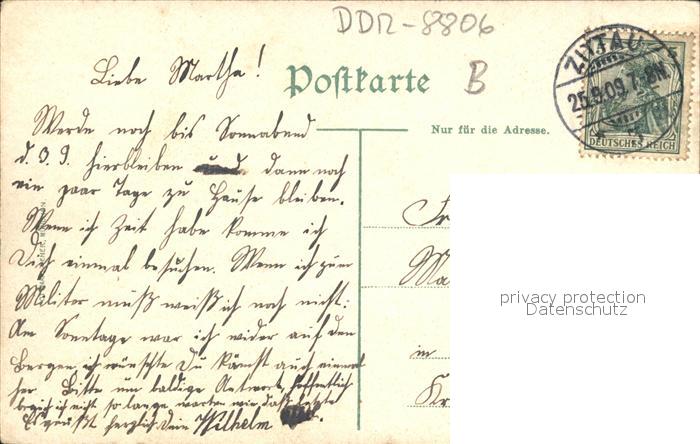 DDR-8806
Liebe Martha!
Postkarte
B
ZITTAU
25.8.09. 7-8N.
DEUTSCHES REICH
Nur für die Adresse.
Werde noch bis Sonnabend
d. 3. 9. hierbleiben und dann noch
ein paar Tage zu Hause bleiben.
Wenn ich Zeit habe komme ich
Dich einmal besuchen. Wenn ich zum
Militär muß weiß ich noch nicht.
Am Sonntage war ich wider auf den
Bergen ich wünschte Du kämst auch einmal
her. Bitte um baldige Antwort, hoffentlich
brauch ich nicht so lange warten wie das letzte
Es grüßt herzlich Dein Wilhelm
Fr
Ma
in
Kr
privacy protection
Datenschutz